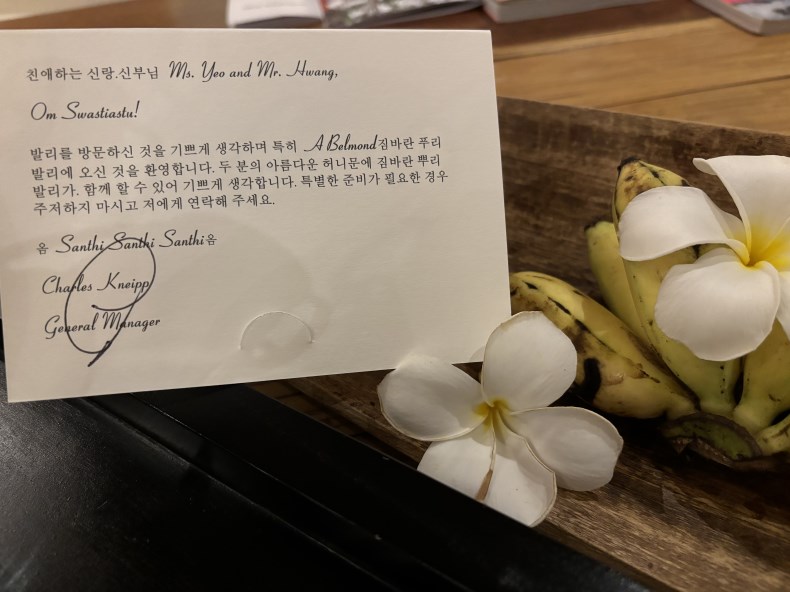 친애하는 신랑.신부님 Ms. Yeo and Mr. Hwang,
Om Swastiastu!
발리를 방문하신 것을 기쁘게 생각하며 특히 A Belmond짐바란 푸리
발리에 오신 것을 환영합니다. 두 분의 아름다운 허니문에 짐바란 뿌리
발리가. 함께 할 수 있어 기쁘게 생각합니다. 특별한 준비가 필요한 경우
주저하지 마시고 저에게 연락해 주세요.
옴 Santhi Santhi Santhi옴
Charles Kneipp
General Manager